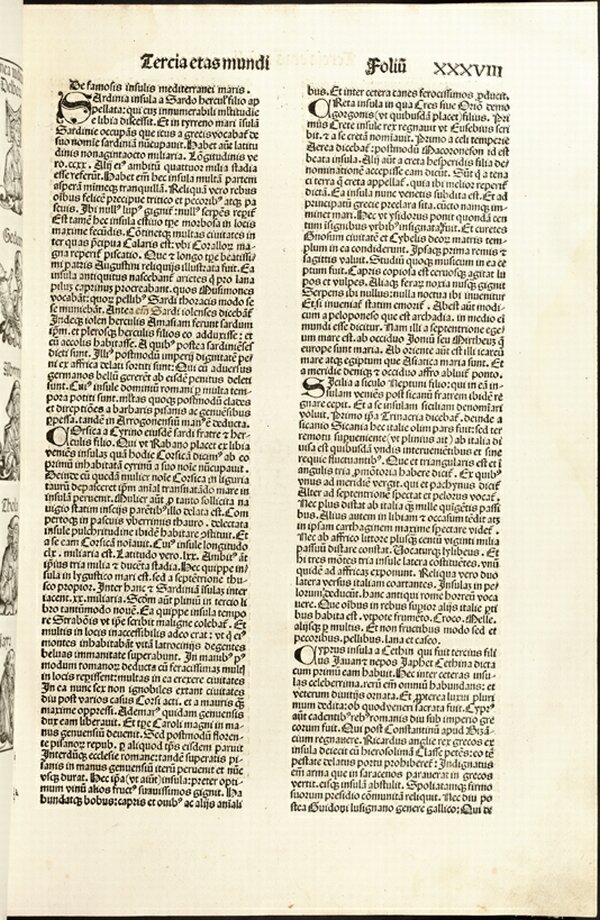 Tercia etas mundi
Foliū XXXVIII
De famosis insulis mediterranei maris.
Sardinia insula a Sardo hercul' filio ap
pellata: qui cū innumerabili multitudie
e libia discessit. Et in tyrreno mari īsulā
Sardinie occupās que icus a grecis vocabat̄ de
suo nomie sardiniā nūcupauit. Habet aūt latitu
dinis nonagintaocto miliaria. Lōgitudinis ve
ro .ccxx. Alij ei⁹ ambitū quattuor milia stadia
esse referūt. Habet em̄ hec insula multā partem
asperā mimecꝫ tranquillā. Reliquā vero rebus
oībus felicē precipue tritico et pecorib⁹ atqꝫ pa
scuis. Ibi null⁹ lup⁹ gignit̄: null⁹ serpēs repit̄
Est tamē hec insula estiuo tp̄e morbosa in locis
maxime fecūdis. Cōtinetqꝫ multas ciuitates in
ter quas p̄cipua Calaris est: vbi Corallor̄ ma-
gna reperit̄ piscatio. Que ⁊ longo tp̄e beatissi
mi patris Augustini reliquijs illustrata fuit. Ea
insula antiquitus nascebant̄ arietes q̄ pro lana
pilus caprinus procreabant. quos Musimones
vocabāt: quor̄ pellib⁹ Sardi thoracis modo se
se muniebāt. Antea em̄ Sardi iolenses dicebāt̄
Indeqꝫ iolen herculis Amasiam ferunt sardum
ip̄m. et pleros̄qꝫ herculis filios eo adduxisse: et
cū accolis habitasse. A quib⁹ postea sardiniēses
dicti sunt. Ill⁹ postmodū imperij dignitatē pe/
ni ex affrica delati sortiti sunt: Qui cū aduersus
germanos bellū gererēt ab eisdē penitus deleti
sunt. Cui⁹ insule dominiū romani p̄ multa tem-
pora potiti sunt. mltas quoqꝫ postmodū clades
et direptiōnes a barbaris pisanis ac genuēsibus
ꝑpessa. tandē in Arrogonensiū man⁹ ē deducta.
Corsica a Cyrino eiusdē sardi fratre ⁊ her-
culis filio. Qui vt Rabano placet ex libia
veniēs insulaȝ quā hodie Corsicā dicim⁹ ab eo
primū inhabitatā cyrinū a suo noīe nūcupauit.
Deinde cū quedā mulier noīe Corsica in liguria
taurū depasceret ip̄m aīal transnatādo mare in
insulā peruenit. Mulier aūt ꝓ tanto sollicita na
uigio statim inscijs parētib⁹ illo delata est. Com
pertoqꝫ in pascuis vberrimis thauro. delectata
insule pulchritudine ibidē habitare ꝯstituit. Et
a se eam Corsicā noīauit. Cui⁹ insule longitudo
clx. miliaria est. Latitudo vero .lxx. Ambit⁹ āt
ip̄ius tria milia ⁊ ducēta stadia. Hec quippe in/
sula in lygustico mari est. sed a septētrione thu-
sco propior. Inter hanc ⁊ Sardiniā īsulas inter
iacent .xx. miliaria. Scd̄m aūt pliniū in tercio li
bro tantūmodo nouē. Ea quippe insula tempo
re Strabōis vt ip̄e scribit maligne colebat̄. Et
multis in locis inaccessibilis adeo erat: vt q̄ ei⁹
montes inhabitabāt vitā latrocinijs degentes
beluas immanitate superabunt. In manib⁹ p⁹
modum romanor̄ deducta cū feracissimas mult/
in locis repissent: multas in ea erexere ciuitates
In ea nūc sex non ignobiles extant ciuitates
diu post varios casus Corsi acti. et a mauris q̄
maxime oppressi. Ademar⁹ quidam genuensis
dux eam liberauit. Et tp̄e Caroli magni in ma-
nus genuensiū deuenit. Sed postmodū floren-
te pisanor̄ repub. ꝑ aliquod tp̄s eisdem paruit
Interdūqꝫ ecclesie romane: tandē superatis pi-
sanis in manus genuensiū iterū peruenit et nūc
vsqꝫ durat. Hec ip̄a (vt aiūt) insula: preter opti-
mum vinū alios fruct⁹ suauissimos gignit. Ha
bundatqꝫ bobus: capris et ouib⁹ ac alijs aīali
bus. Et inter cetera canes ferocissimos ꝓducit.
Creta insula in qua Cres siue Oriō demo
gorgonis (vt quibusdā placet) filius. Pri
mus Crete insule rex regnauit vt Eusebius scri
bit. ⁊ a se cretā nomīauit. Primo a celi temperie
Aerea dicebat̄: postmodū Macoroneson id est
beata insula. Alij aūt a creta hesperidis filia de/
nominationē accepisse eam dicūt. Sūt q̄ a tena
ci terra q̄ creta appellat̄. quia ibi melior reperit̄
dictā. Ea insula nunc venetis subdita est. Et ad
principatū grecie preclara sita. cūcto nanqꝫ im-
minet mari. Hec vt ysidorus ponit quondā cen
tum īsignibus vrbib⁹ insignita fuit. Et curetes
Gnosum ciuitatē et Cybelis deor̄ matris tem-
plum in ea condiderunt. Ipsaqꝫ prima remis ⁊
sagittis valuit. Studiū quoqꝫ musicum in ea ce
ptum fuit. Capris copiosa est ceruosqꝫ agitat lu
pos et vulpes. Aliaqꝫ feraȝ noxia nusqꝫ gignit
Serpens ibi nullus: nulla noctua ibi inuenitur
Et si inueniat̄ statim emorit̄. Abest aūt modi-
cum a peloponeso que est archadia. in medio ei
mundi esse dicitur. Nam illi a septentrione ege/
um mare est. ab occiduo Ioniū seu Mirtheus ꝗ
europe sunt maria. Ab oriente aūt est illi icareū
mare atqꝫ egiptum que Asiatica maria sunt. Et
a meridie denicꝫ ⁊ occiduo affro abluit̄ ponto.
Sicilia a siculo Neptuni filio: qui in eā in-
sulam veniēs post sicanū fratrem ibidē re
gnare cepit. Et a se insulam siciliam denomīari
voluit. Primo ip̄a Trinacria dicebat̄. deinde a
sicanio Sicania hec italie olim pars fuit: sed ter
remotu supueniente (vt plinius ait) ab italia di
uisa est quibusdā vndis interuenientibus et sine
requie fluctuantib⁹. Que et triangularis est et ī
angulis tria ꝓmōtoria habere dicit̄. Ex quib⁹
vnus ad meridiē vergit. qui et pachynus dicit̄
Alter ad septentrionē spectat et pelorus vocat̄.
Nec plus distat ab italia q̄ mille quigētis passi
bus. Alius autem in libiam ⁊ occasum tēdit atqꝫ
in ipsam carthaginem maxime spectare videt̄.
Nec ab affrico littore plusqꝫ centū viginti milia
passuū distare constat. Vocaturqꝫ lylibeus. Et
hi tres mōtes tria insule latera costituētes. vnū
quidē ad affricas exponunt. Reliqua vero duo
latera versus italiam coartantes. Insulaȝ in pe/
lorum deducūt. hanc antiqui rome horreū voca
uere. Que oībus in rebus supior alijs italie ꝑti
bus habita est. vtpote frumēto. Croco. Melle.
alijsqꝫ ꝑ multis. Et non fructibus modo sed et
pecoribus. pellibus. lana et caseo.
Cyprus insula a Cethin qui fuit tercius fili
us Iauan⁊ nepos Iaphet Cethina dicta
cum primū eam habuit. Hec inter ceteras insu-
las celeberrima. rerū em̄ omniū habundans: et
veterum diuitijs ornata. Et ꝓpterea luxui pluri
mum dedita: ob quod veneri sacrata fuit. Cypr⁹
aūt cadentib⁹ reb⁹ romanis diu sub imperio gre
corum fuit. Qui post Constantinū apud Bizā-
cium regnauere. Ricardus anglie rex grecos ex
insula deiecit cū hierosolimā Classe petēs: eo tē
pestate delatus portu prohiberet̄: Indignatus
em̄ arma que in saracenos parauerat in grecos
vertit. eisqꝫ insulā abstulit. Spoliatamqꝫ firmo
suorum presidio cōmunitā reliquit. Nec diu po
stea Guidoni lusignano genere gallico: Qui de